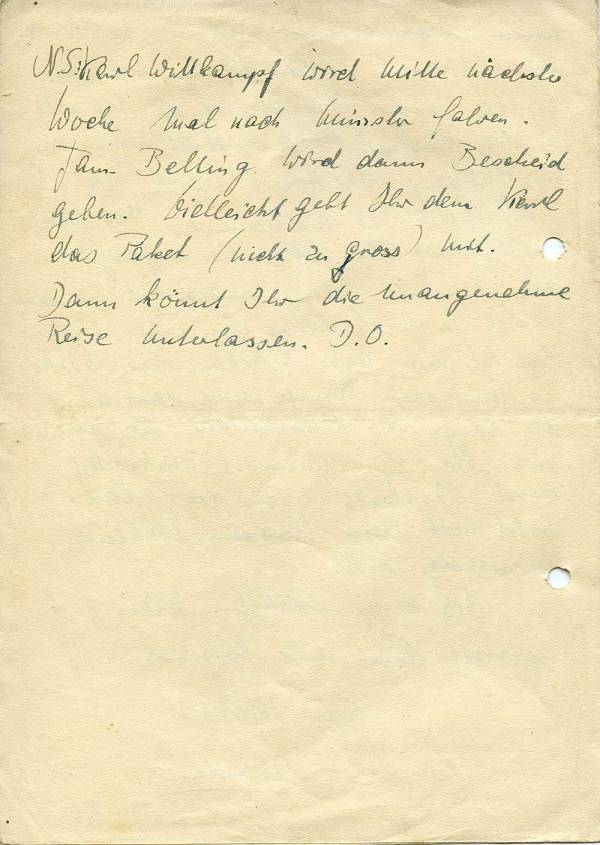 N.S: Karl Wittkampf wird Mitte nächste
Woche mal nach Münster fahren.
Fam. Belling wird dann Bescheid
geben. Vielleicht gebt Ihr dem Karl
das Paket (nicht zu gross) mit.
Dann könnt Ihr die unangenehme
Reise unterlassen. D.O.